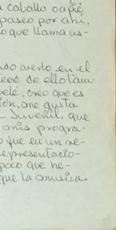 caballo o a pié,
paseo por ahí,
o que llama us-
do averlo en el
creo que es
ion, me gusta
Juvenil, que
mis progra-
que en un re-
epresentacio-
poco que he-
que la música.